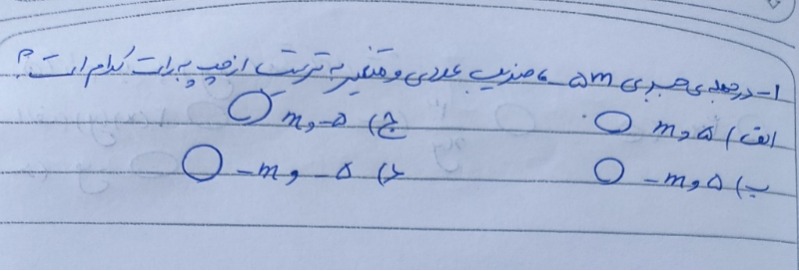 ۱- در جمله‌ی جبری ۵m- ضریب عددی و متغیر به ترتیب از چپ به راست کدام است؟
الف) ۵ و m ج) ۵- و m
ب) ۵ و m- د) ۵- و m-